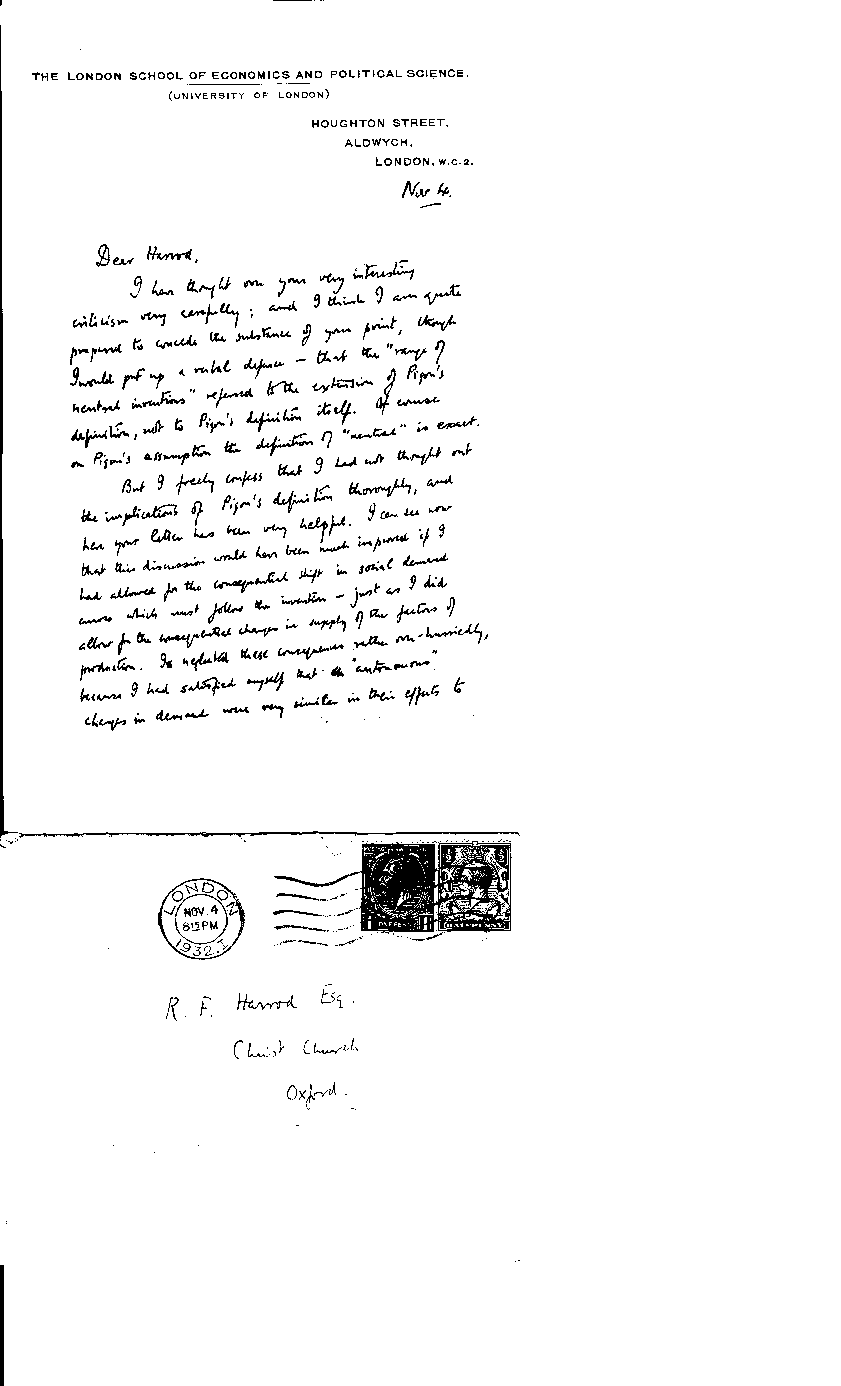 THE LONDON SCHOOL OF ECONOMICS AND POLITICAL SCIENCE.
(UNIVERSITY OF LONDON)
HOUGHTON STREET,
ALDWYCH,
LONDON, W.C.2.
Nov 4.
Dear Harrod,
I have thought over your very interesting
criticism very carefully; and I think I am quite
prepared to concede the substance of your point, though
I would put up a verbal defence – that the "range of
neutral inventions" referred to the extension of Pigou's
definition, not to Pigou's definition itself. Of course
on Pigou's assumption the definition of "neutral" is exact.
But I freely confess that I had not thought out
the implications of Pigou's definition thoroughly, and
here your letter has been very helpful. I can see now
that this discussion would have been much improved if I
had allowed for the consequential shift in social demand
curves which must follow the invention – just as I did
allow for the consequential changes in supply of the factors of
production. I neglected these consequences rather over-hurriedly,
because I had satisfied myself that "autonomous"
changes in demand were very similar in their effects to
LONDON
NOV. 4
815 PM
1932
HALFPENNY
R. F. Harrod Esq.
Christ Church
Oxford.